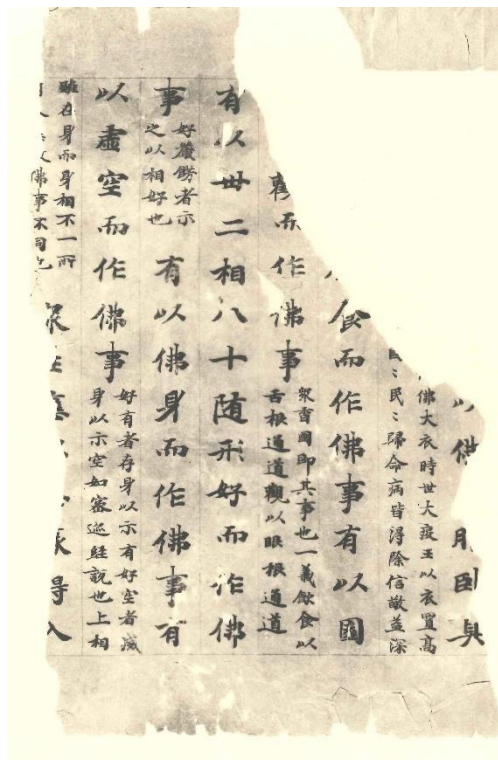 以佛服臥具
佛大衣時世大疫王以衣置高
〻民〻歸命病皆得除信敬益深
食而作佛事有以園
觀而作佛事
眾香國即其事也一義飲食以
舌根通道觀以眼根通道
有以卅二相八十随形好而作佛
事
好嚴餝者示
之以相好也
有以佛身而作佛事有
以虛空而作佛事
好有者存身以示有好空者滅
身以示空如密迹經說也上相
雖在身而身相不一所
故佛事不同也
眾生應以緣得入